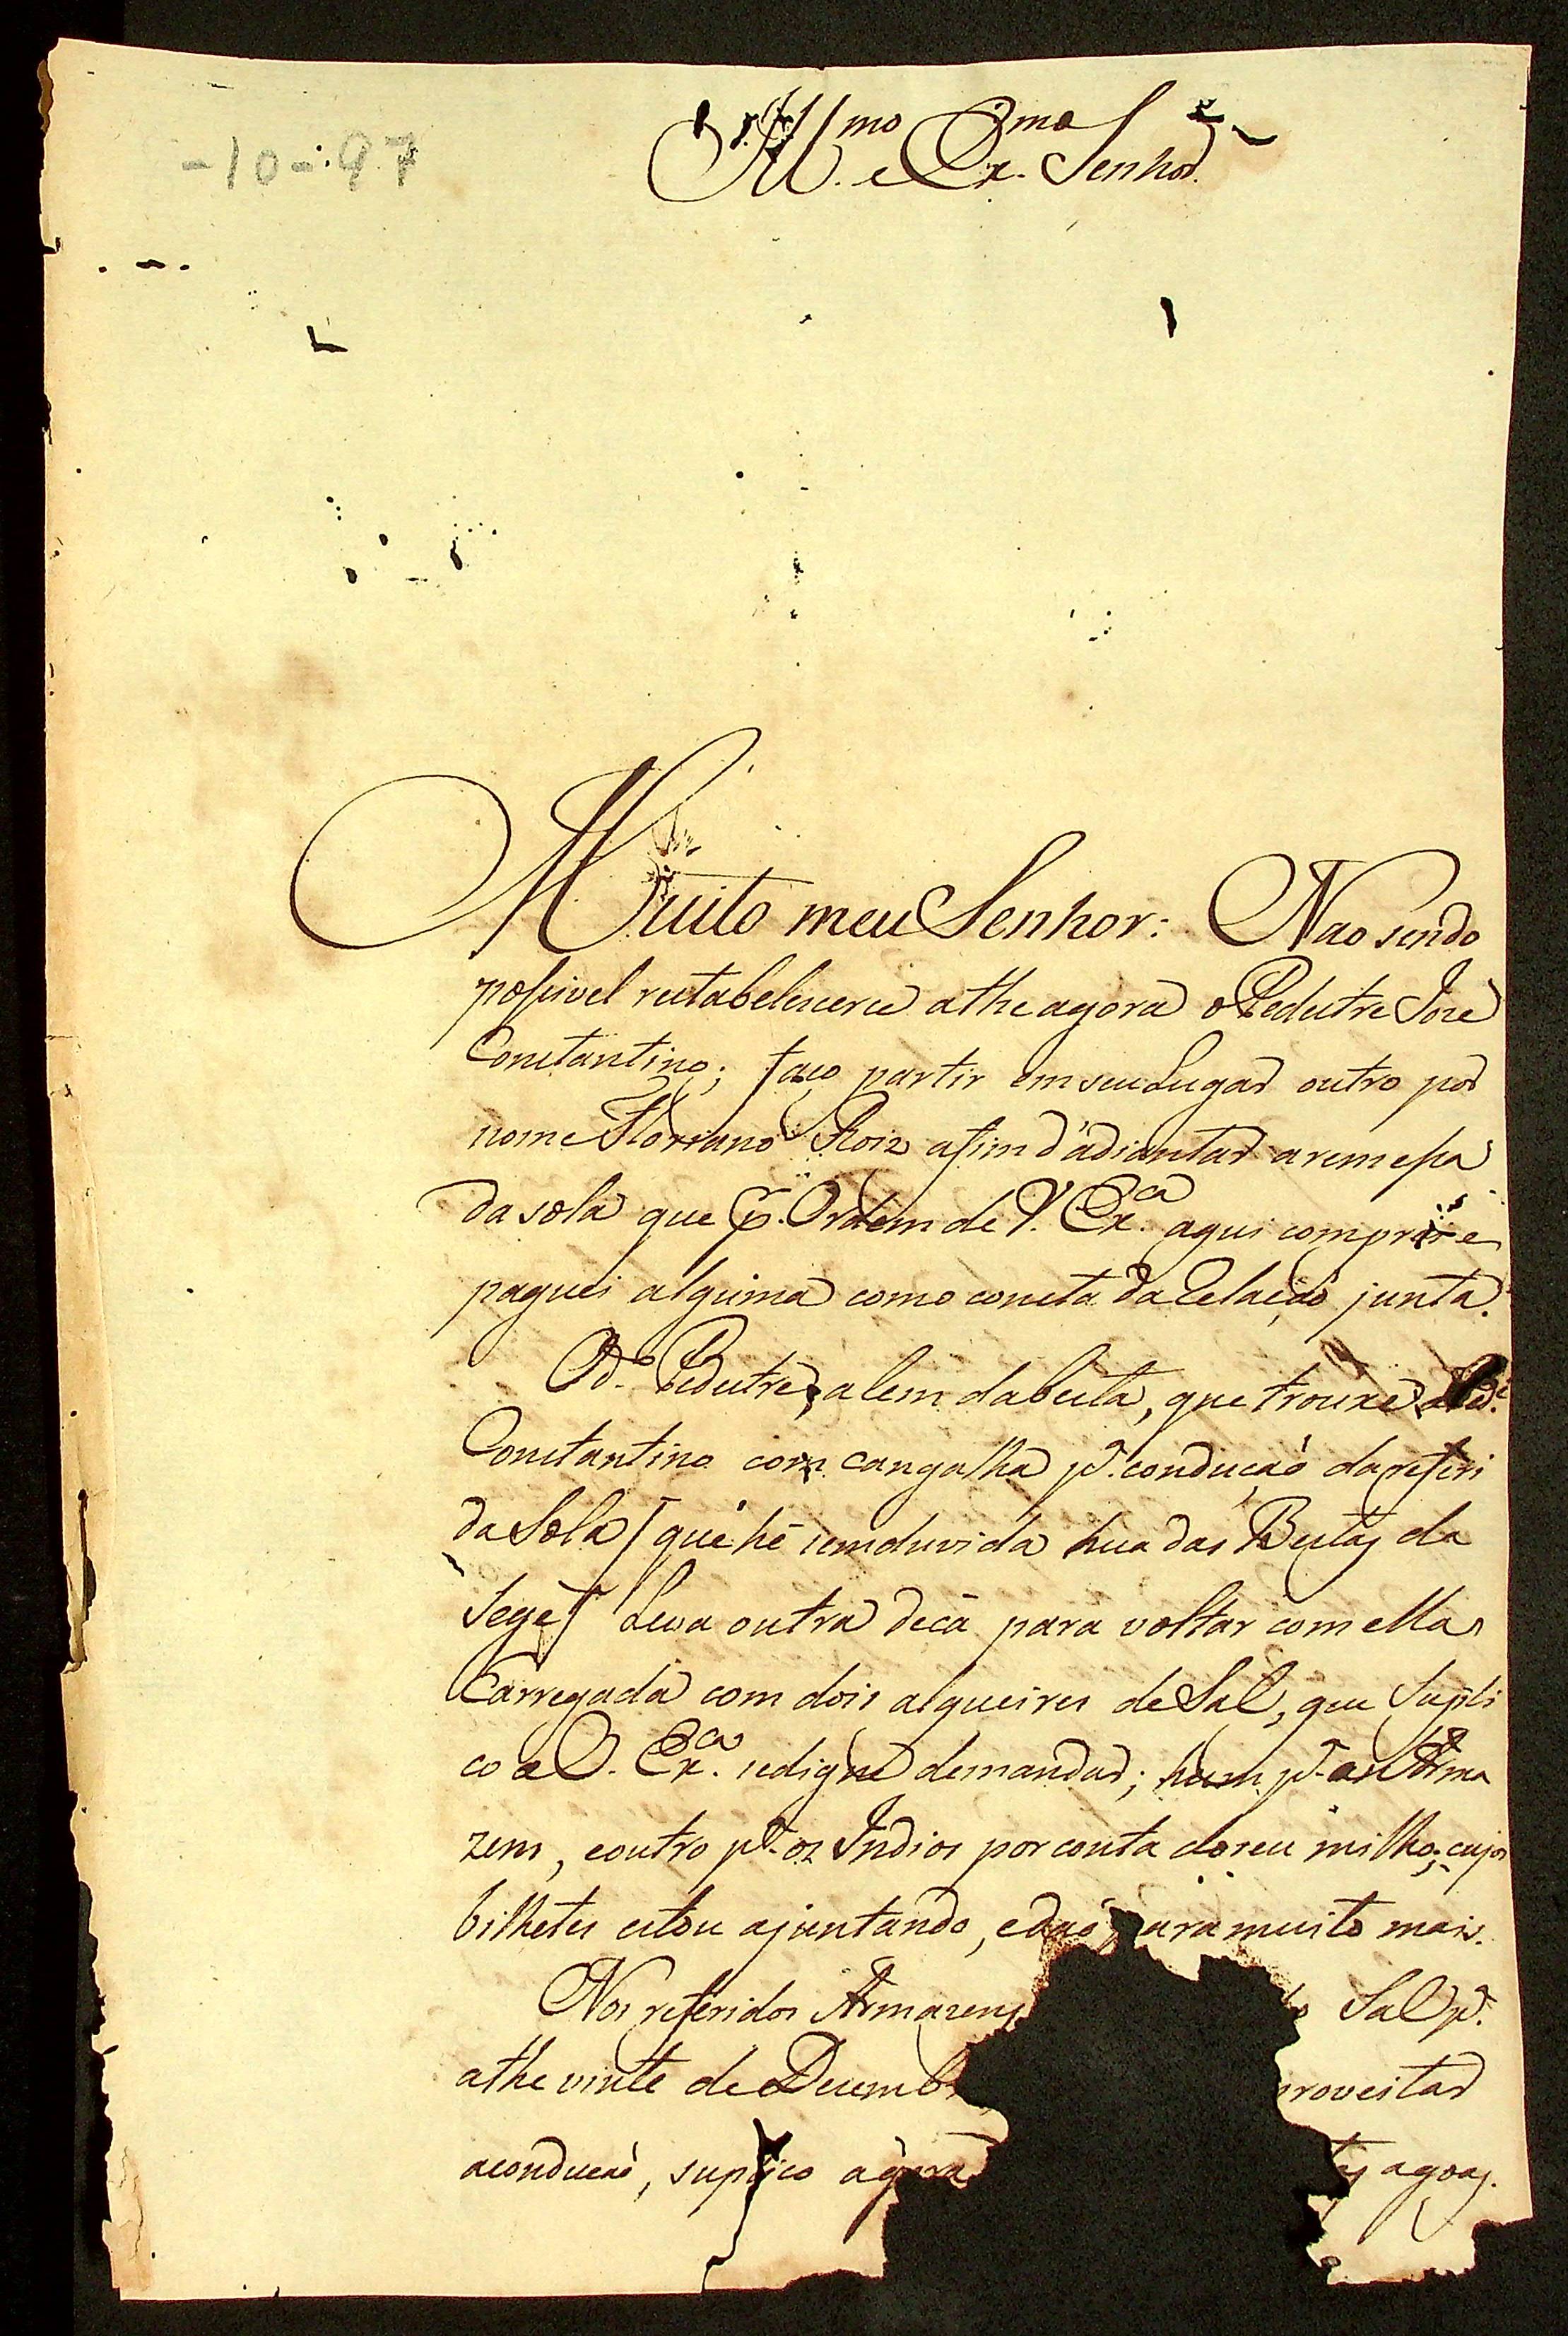 -10-:97
Ill.mo e Ex.mo Senhor.
Muito meu Senhor: Nao sendo
possivel restabelecerse athe agora o Pedestre Joze
Constantino; faço partir em seu Lugar outro por
nome Floriano Roiz afim d'adiantar a remessa
da sola que p. Ordem de V. Ex.ca aqui comprei e
paguei alguma como consta da Relação junta.
O d.o Pedestre, alem da besta, que trouxe
Constantino com cangalha p.a condução da referi
da Sola [que hé sem duvida hua das Bestas da
Sege] Leva outra decá para voltar com ellas
Carregada com dois alqueires de Sal, que Supli
co a V. Ex.ca se digne de mandar; hum p.a os Arma
zens, e outro p.a os Indios por conta do seu milho; cujos
bilhetes estou ajuntando, e dão para muito mais.
Nos referidos Armazens Sal p.a
athe vinte de Dezemb
aconducão, suplico agoas.